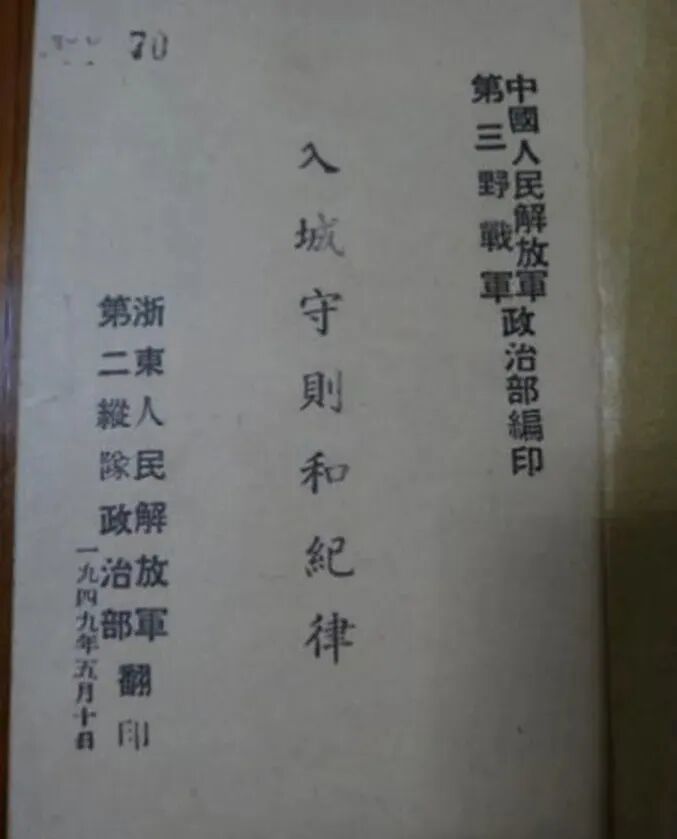 中國人民解放軍政治部編印
第三野戰軍
入城守則和紀律
浙東人民解放軍翻印
第二縱隊政治部
一九四九年五月十日
70